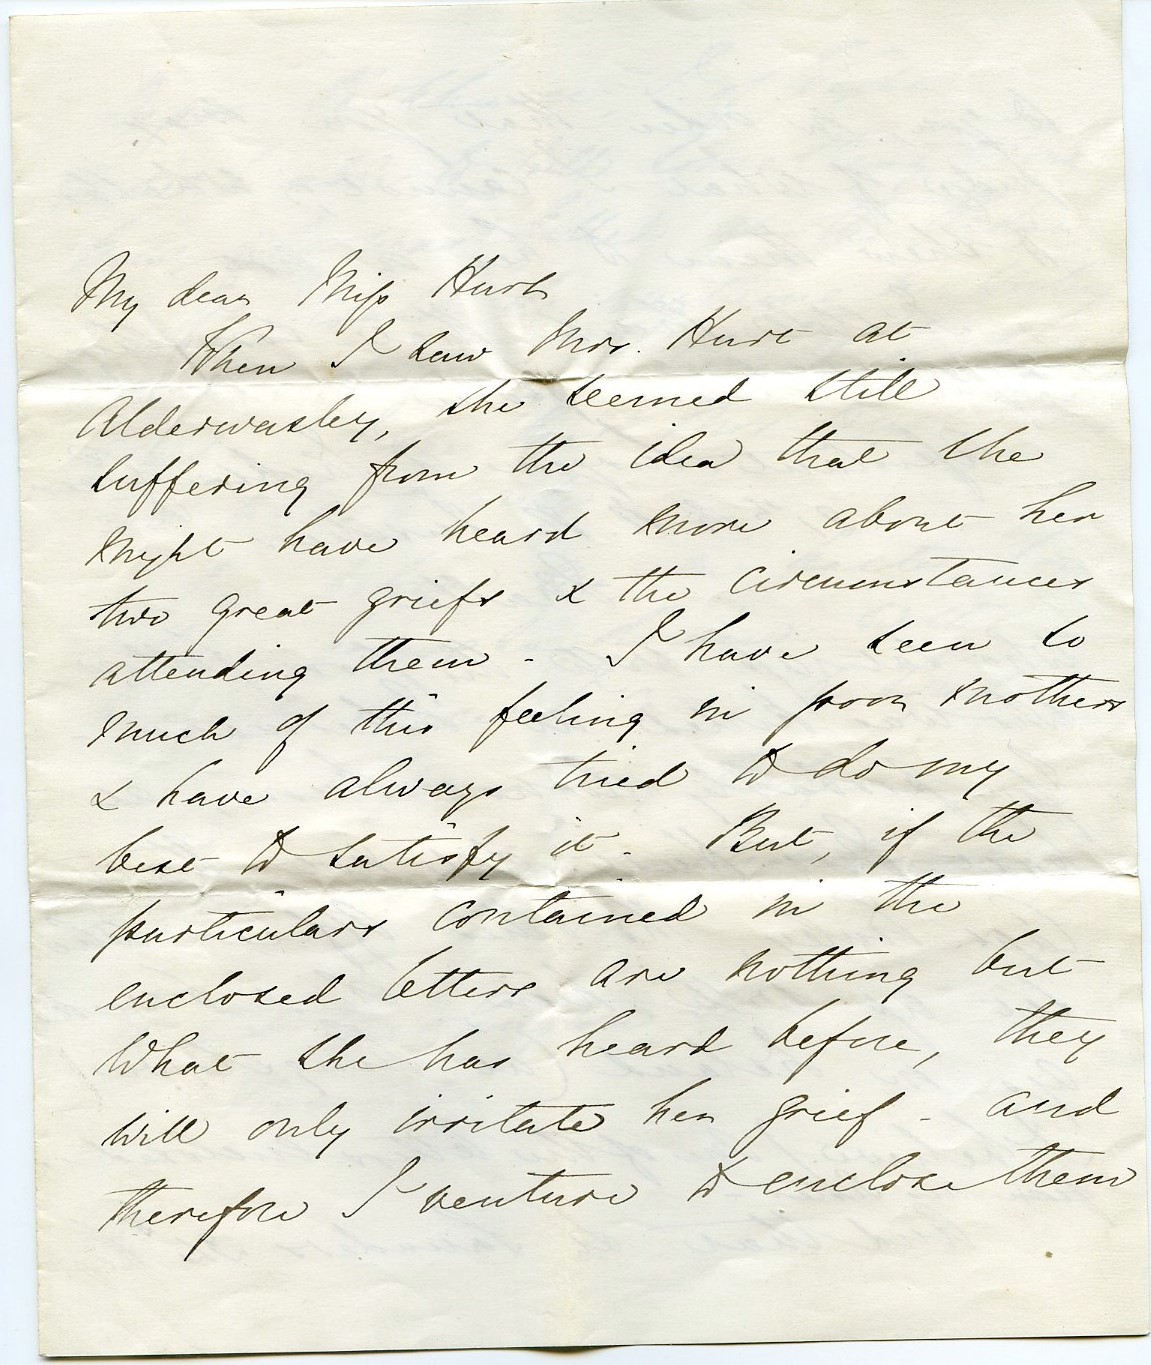 My dear Miss Hurt
When I saw Mrs. Hurt at
Alderwasley, she seemed still
suffering from the idea that she
might have heard more about her
two great griefs & the circumstances
attending them - I have seen so
much of this feeling in poor mothers
& have always tried to do my
best to satisfy it - But, if the
particulars contained in the
enclosed letters are nothing but
what she has heard before, they
will only irritate her grief - and
therefore I venture to enclose them